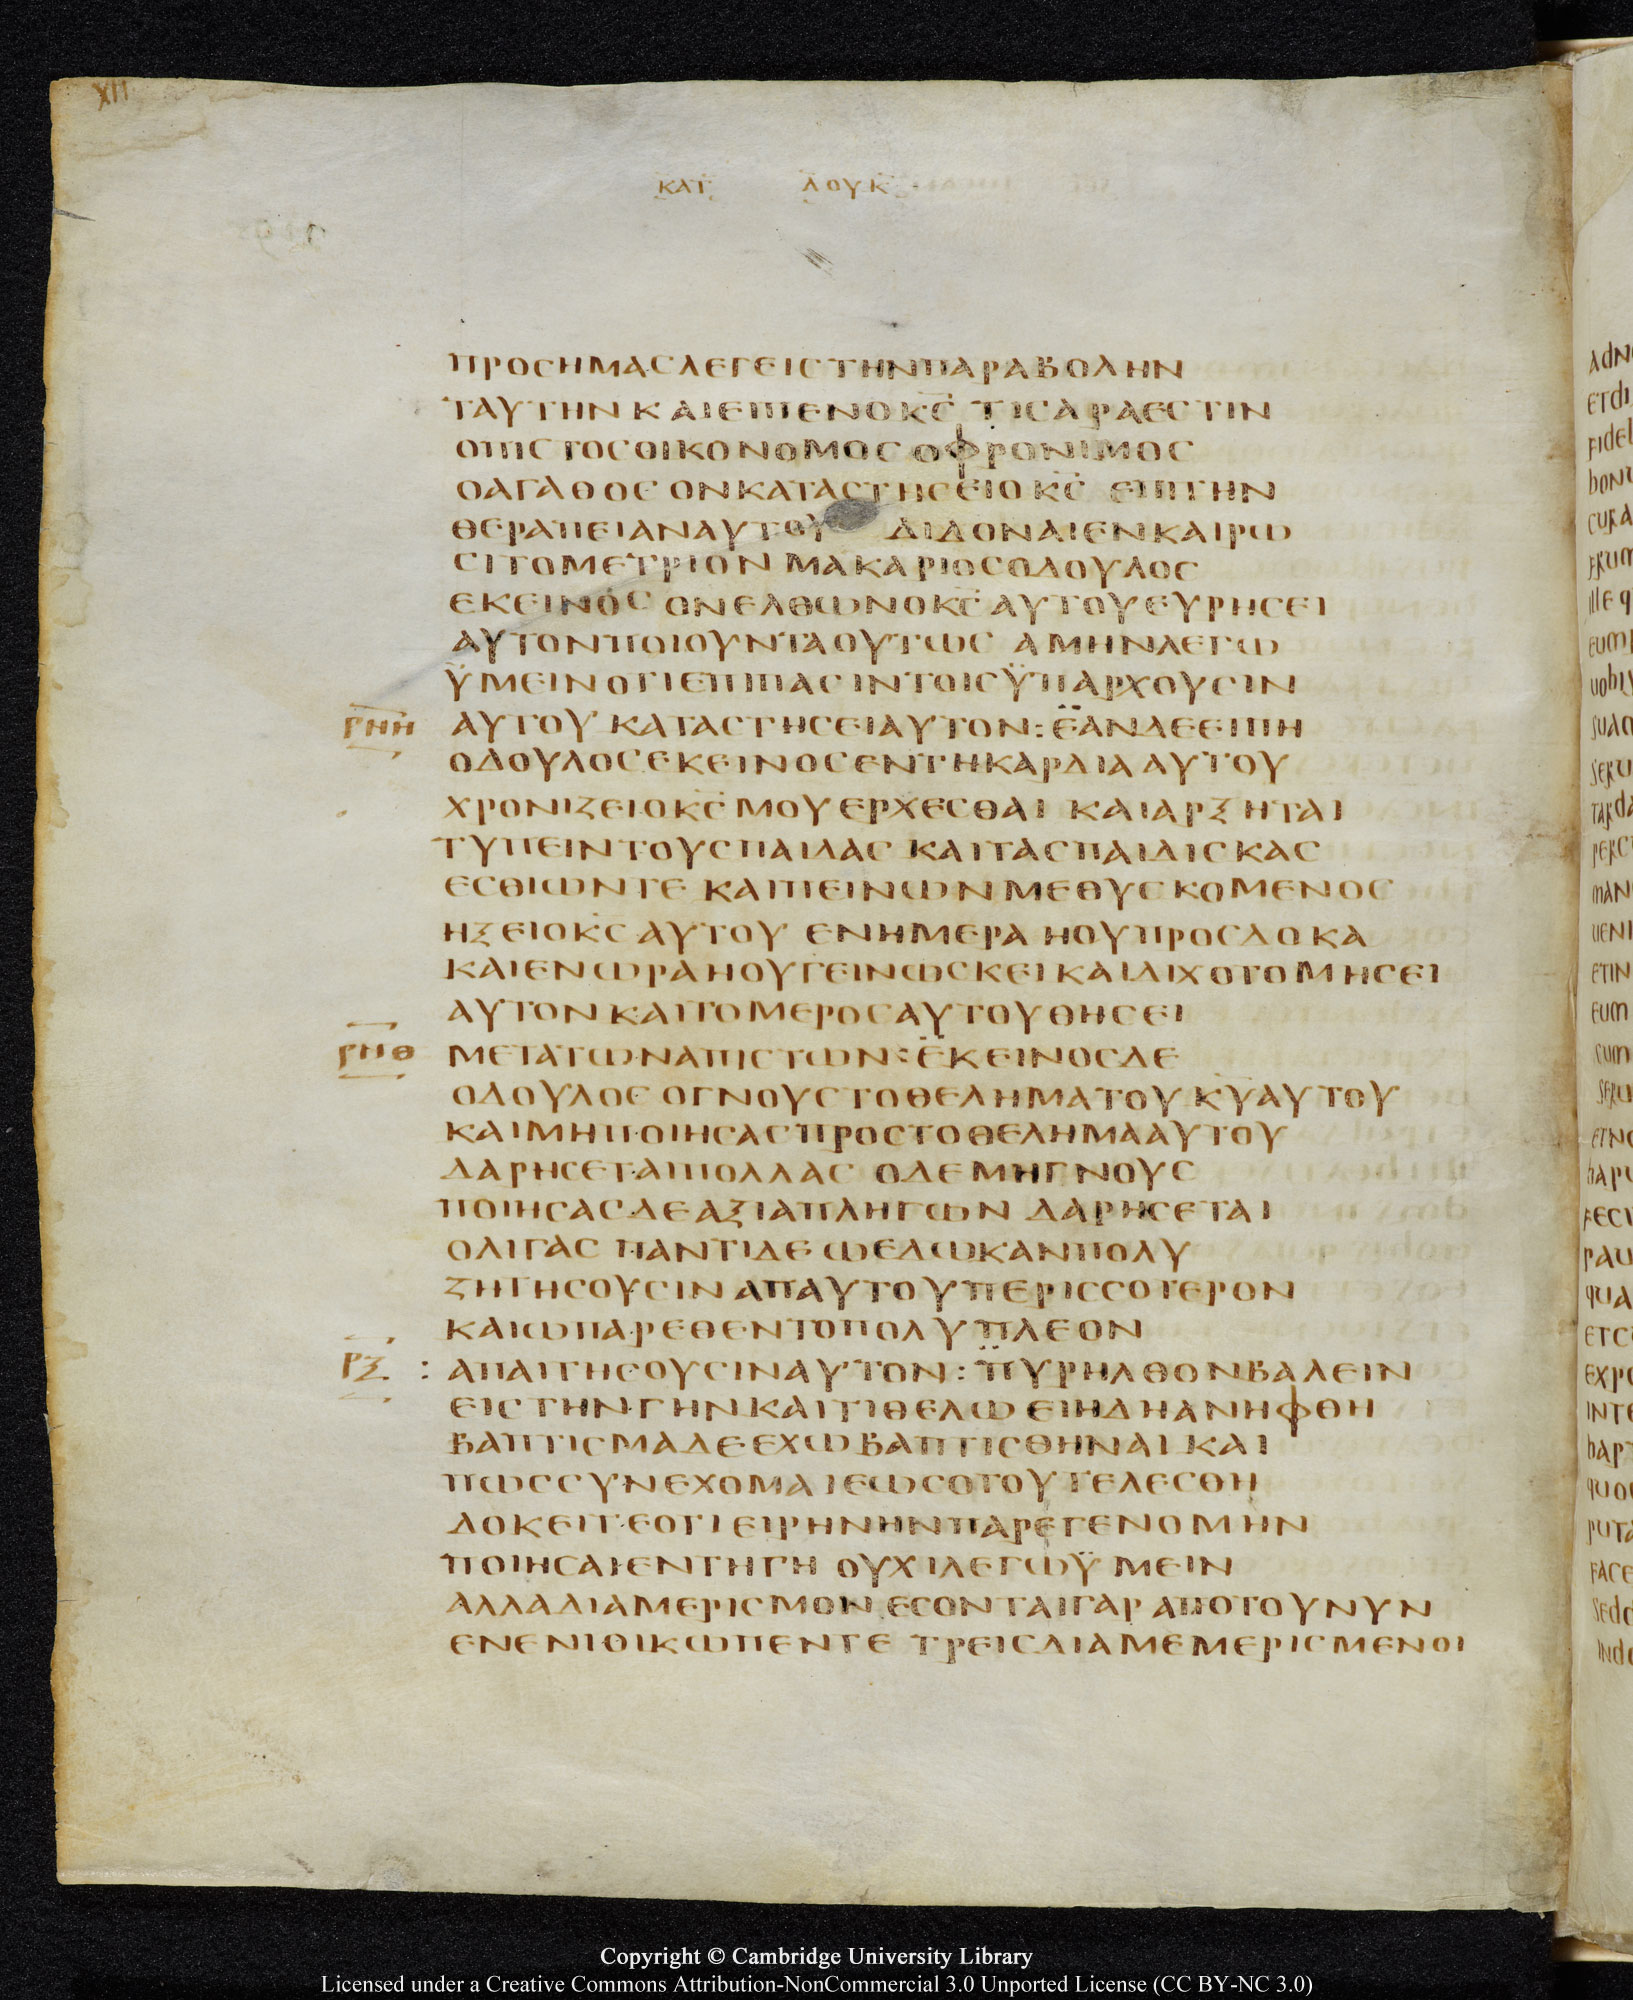 XII
ΚΑΤ ΛΟΥΚ
ΠΡΟΣΗΜΑΣΛΕΓΕΙΣΤΗΝΠΑΡΑΒΟΛΗΝ
ΤΑΥΤΗΝΚΑΙΕΙΠΕΝΟΚ̅Σ̅ ΤΙΣΑΡΑΕΣΤΙΝ
ΟΠΙΣΤΟΣΟΙΚΟΝΟΜΟΣΟΦΡΟΝΙΜΟΣ
ΟΑΓΑΘΟΣ ΟΝΚΑΤΑΣΤΗΣΕΙΟΚ̅Σ̅ ΕΠΙΤΗΝ
ΘΕΡΑΠΕΙΑΝΑΥΤΟΥ ΔΙΔΟΝΑΙΕΝΚΑΙΡΩ
ΣΙΤΟΜΕΤΡΙΟΝ ΜΑΚΑΡΙΟΣΟΔΟΥΛΟΣ
ΕΚΕΙΝΟΣ ΟΝΕΛΘΩΝΟΚ̅Σ̅ΑΥΤΟΥΕΥΡΗΣΕΙ
ΑΥΤΟΝΠΟΙΟΥΝΤΑΟΥΤΩΣ ΑΜΗΝΛΕΓΩ
ΫΜΕΙΝΟΤΙΕΠΙΠΑΣΙΝΤΟΙΣΫΠΑΡΧΟΥΣΙΝ
ΡΝΗ ΑΥΤΟΥ ΚΑΤΑΣΤΗΣΕΙΑΥΤΟΝ: ΕΑΝΔΕΕΙΠΗ
ΟΔΟΥΛΟΣΕΚΕΙΝΟΣΕΝΤΗΚΑΡΔΙΑΑΥΤΟΥ
ΧΡΟΝΙΖΕΙΟΚ̅Σ̅ΜΟΥΕΡΧΕΣΘΑΙ ΚΑΙΑΡΞΗΤΑΙ
ΤΥΠΕΙΝΤΟΥΣΠΑΙΔΑΣ ΚΑΙΤΑΣΠΑΙΔΙΣΚΑΣ
ΕΣΘΙΩΝΤΕ ΚΑΙΠΕΙΝΩΝΜΕΘΥΣΚΟΜΕΝΟΣ
ΗΞΕΙΟΚ̅Σ̅ΑΥΤΟΥ ΕΝΗΜΕΡΑ ΗΟΥΠΡΟΣΔΟΚΑ
ΚΑΙΕΝΩΡΑΗΟΥΓΕΙΝΩΣΚΕΙΚΑΙΔΙΧΟΤΟΜΗΣΕΙ
ΑΥΤΟΝΚΑΙΤΟΜΕΡΟΣΑΥΤΟΥΘΗΣΕΙ
ΡΝΘ ΜΕΤΑΤΩΝΑΠΙΣΤΩΝ: ΕΚΕΙΝΟΣΔΕ
ΟΔΟΥΛΟΣ ΟΓΝΟΥΣΤΟΘΕΛΗΜΑΤΟΥΚ̅Υ̅ΑΥΤΟΥ
ΚΑΙΜΗΠΟΙΗΣΑΣΠΡΟΣΤΟΘΕΛΗΜΑΑΥΤΟΥ
ΔΑΡΗΣΕΤΑΙΠΟΛΛΑΣ ΟΔΕΜΗΓΝΟΥΣ
ΠΟΙΗΣΑΣΔΕΑΞΙΑΠΛΗΓΩΝ ΔΑΡΗΣΕΤΑΙ
ΟΛΙΓΑΣ ΠΑΝΤΙΔΕΩΕΔΩΚΑΝΠΟΛΥ
ΖΗΤΗΣΟΥΣΙΝΑΠΑΥΤΟΥΠΕΡΙΣΣΟΤΕΡΟΝ
ΚΑΙΩΠΑΡΕΘΕΝΤΟΠΟΛΥΠΛΕΟΝ
ΡΞ : ΑΠΑΙΤΗΣΟΥΣΙΝΑΥΤΟΝ: ΠΥΡΗΛΘΟΝΒΑΛΕΙΝ
ΕΙΣΤΗΝΓΗΝΚΑΙΤΙΘΕΛΩΕΙΗΔΗΑΝΗΦΘΗ
ΒΑΠΤΙΣΜΑΔΕΕΧΩΒΑΠΤΙΣΘΗΝΑΙΚΑΙ
ΠΩΣΣΥΝΕΧΟΜΑΙΕΩΣΟΤΟΥΤΕΛΕΣΘΗ
ΔΟΚΕΙΤΕΟΤΙΕΙΡΗΝΗΝΠΑΡΕΓΕΝΟΜΗΝ
ΠΟΙΗΣΑΙΕΝΤΗΓΗ ΟΥΧΙΛΕΓΩΫΜΕΙΝ
ΑΛΛΑΔΙΑΜΕΡΙΣΜΟΝ ΕΣΟΝΤΑΙΓΑΡΑΠΟΤΟΥΝΥΝ
ΕΝΕΝΙΟΙΚΩΠΕΝΤΕ ΤΡΕΙΣΔΙΑΜΕΜΕΡΙΣΜΕΝΟΙ
Copyright © Cambridge University Library
Licensed under a Creative Commons Attribution-NonCommercial 3.0 Unported License (CC BY-NC 3.0)